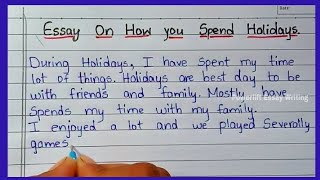 Date:
Essay On How you Spend Holidays.
During Holidays, I have spent my time
lot of things. Holidays are best day to be
with friends and family. Mostly have
Spends my time with my family.
I enjoyed a lot and we played Severally
games.